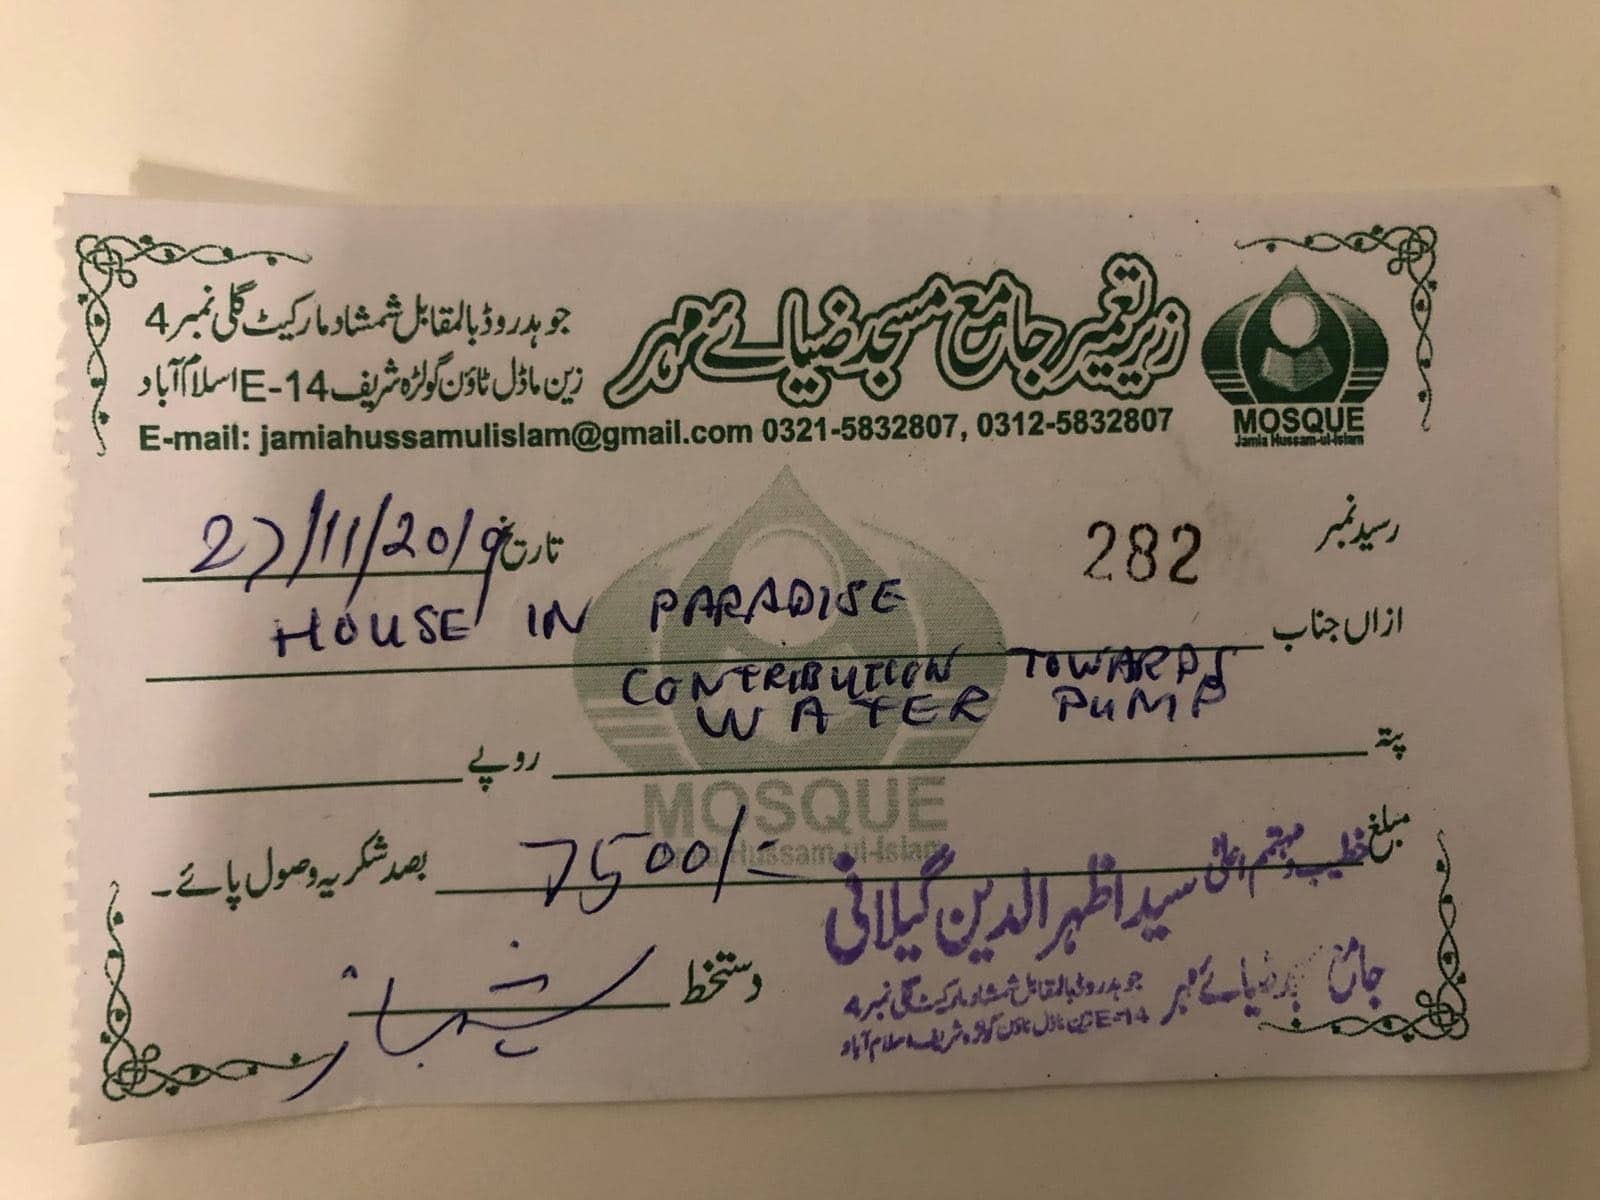 زیر تعمیر جامع مسجد ضیائے مہر
جوہد روڈ بالمقابل شمشاد مارکیٹ گلی نمبر 4
زین ماڈل ٹاؤن گولڑہ شریف E-14 اسلام آباد
E-mail: jamiahussamulislam@gmail.com 0321-5832807, 0312-5832807
MOSQUE
Jamia Hussam-ul-Islam
رسید نمبر 282 تاریخ 27/11/2019
ازاں جناب HOUSE IN PARADISE
CONTRIBUTION TOWARDS
WATER PUMP
پتہ روپے
MOSQUE
Jamia Hussam-ul-Islam
مبلغ 7500/- بصد شکریہ وصول پائے۔
خطیب و مہتمم اعلیٰ سید اظہر الدین گیلانی
دستخط
جامع مسجد ضیائے مہر
جوہد روڈ بالمقابل شمشاد مارکیٹ گلی نمبر 4
زین ماڈل ٹاؤن گولڑہ شریف اسلام آباد E-14